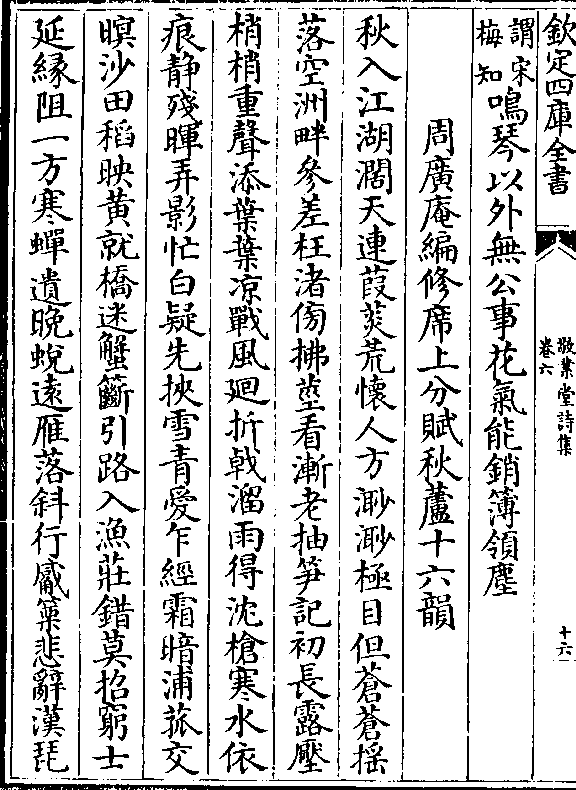 欽定四庫全書
敬業堂詩集
卷六
十六
謂宋
梅知鳴琴以外無公事花氣能銷簿領塵
周廣庵編修席上分賦秋蘆十六韻
秋入江湖濶天連葭菼荒懷人方渺渺極目但蒼蒼揺
落空洲畔參差枉渚傍拂莖看漸老抽笋記初長露壓
梢梢重聲添葉葉凉戰風廻折戟溜雨得沈槍寒水依
痕静殘暉弄影忙白疑先挾雪青愛乍經霜暗浦菰交
暝沙田稻映黄就橋迷蟹籪引路入漁莊錯莫招窮士
延縁阻一方寒蟬遺晩蛻逺雁落斜行觱篥悲辭漢琵